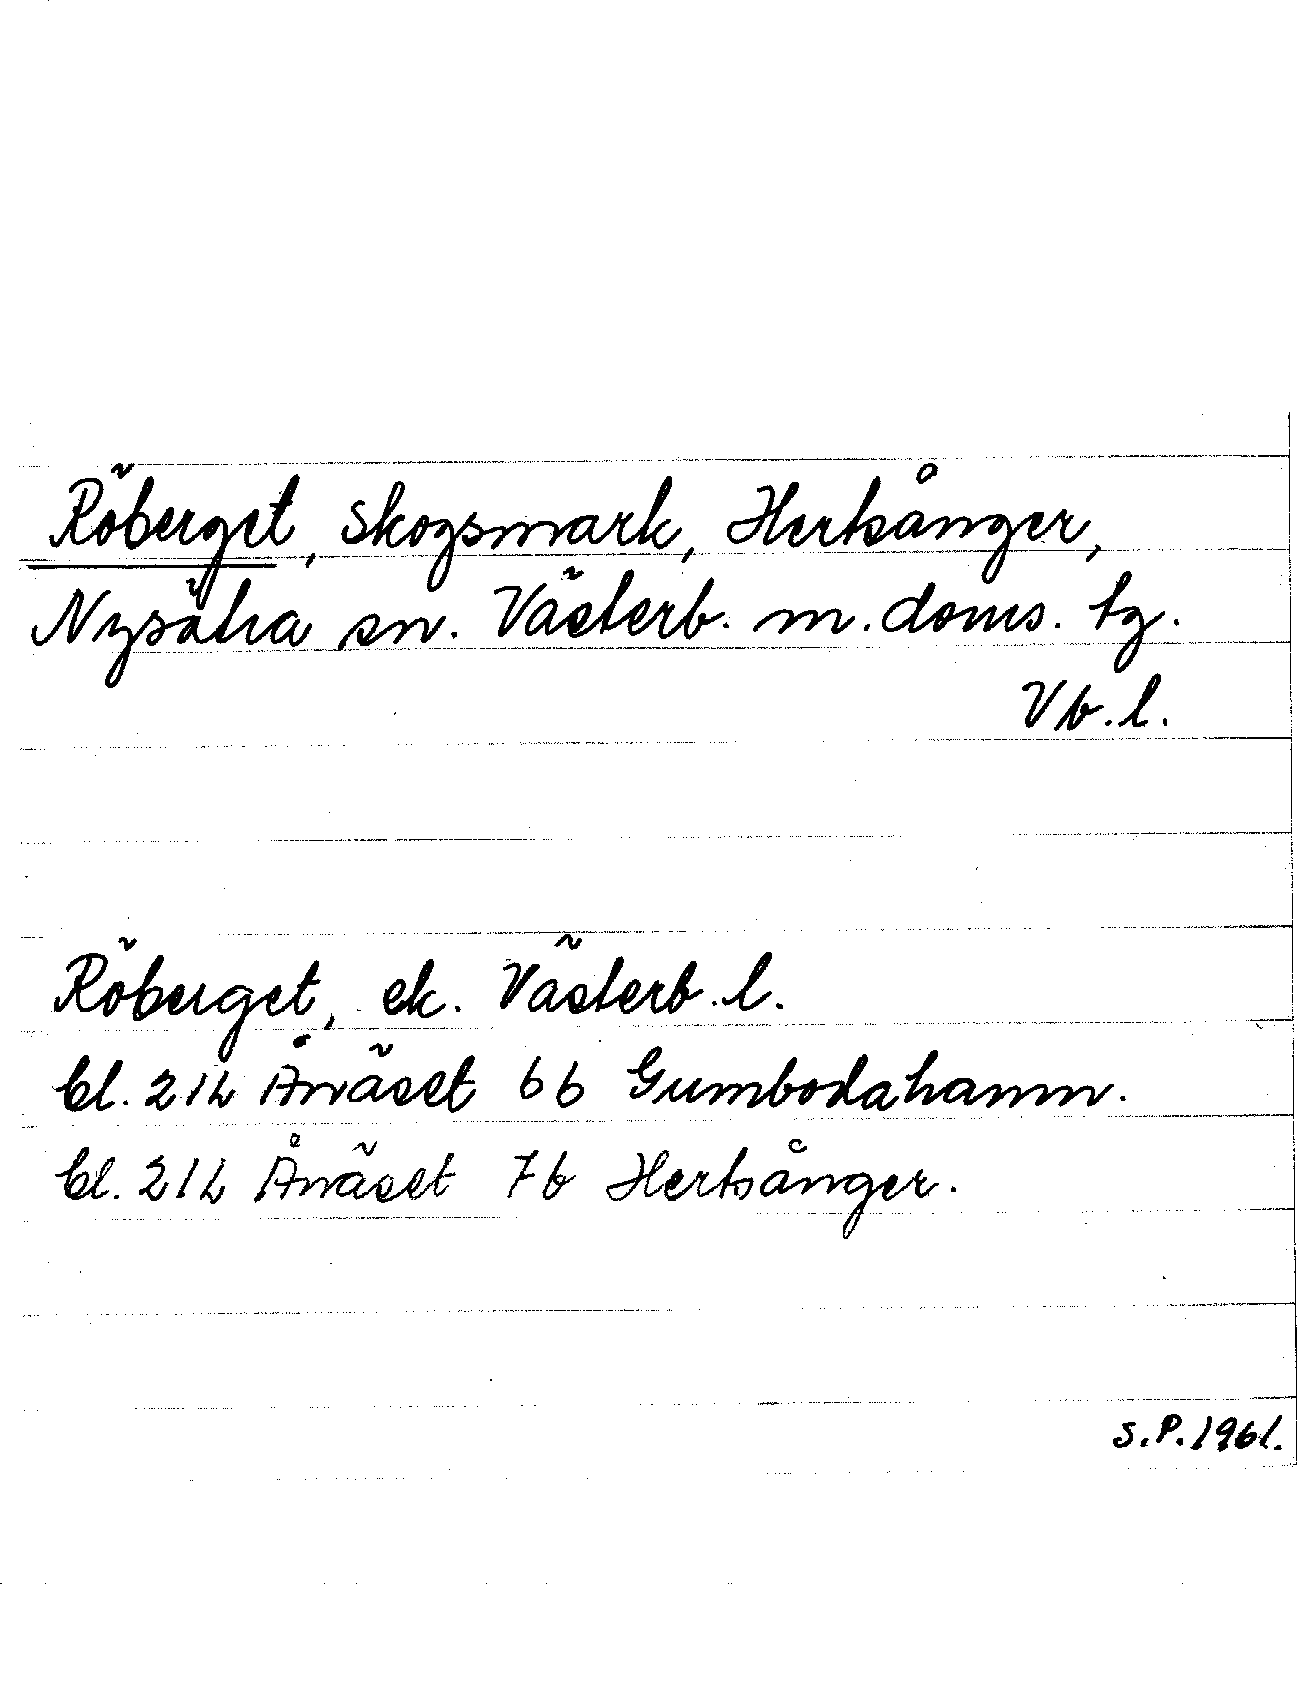 Röberget, skogsmark, Hertsånger,
Nysätra sn. Västerb. m. doms. tg.
Vb. l.
Röberget, ek. Västerb. l.
bl. 21L Ånäset 6b Gumbodahamn.
bl. 21L Ånäset 7b Hertsånger.
S.P. 1961.